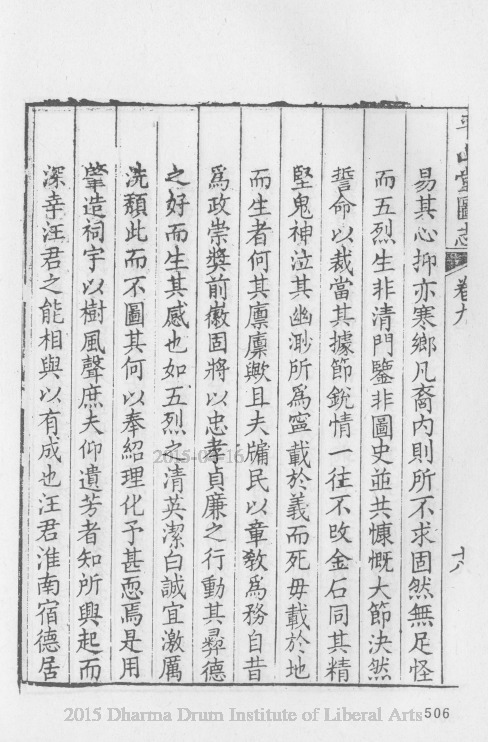 平山堂圖志 卷九 十八
易其心抑亦寒鄉凡裔内則所不求固然無足怪
而五烈生非清門鑒非圖史並共慷慨大節決然
誓命以裁當其據節銳情一往不改金石同其精
堅鬼神泣其幽渺所爲寧載於義而死毋載於地
而生者何其廩廩歟且夫牖民以章教爲務自昔
爲政崇獎前徽固將以忠孝貞廉之行動其彛德
之好而生其感也如五烈之清英潔白誠宜激厲
洗頽此而不圖其何以奉紹理化予甚恧焉是用
肇造祠宇以樹風聲庶夫仰遺芳者知所興起而
深幸汪君之能相與以有成也汪君淮南宿德居
2015 Dharma Drum Institute of Liberal Arts
506